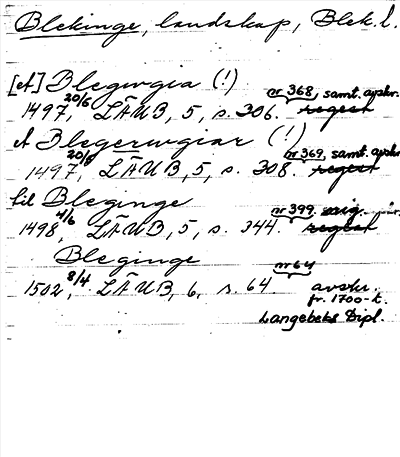 Blekinge, landskap, Blek. l.
[et] Blegwgia (!)
1497 20/5, LÄUB, 5, s. 306. nr 368, samt. avskr. regest
et Blegerwgiar (!)
1497 20/5, LÄUB, 5, s. 308. nr 369, samt. avskr. regest
til Bleginge
1498 4/6, LÄUB, 5, s. 344. nr 399. orig. regest
Bleginge nr 64
1502 8/4, LÄUB, 6, s. 64. avskr.
fr. 1700-t.
Langebeks Dipl.